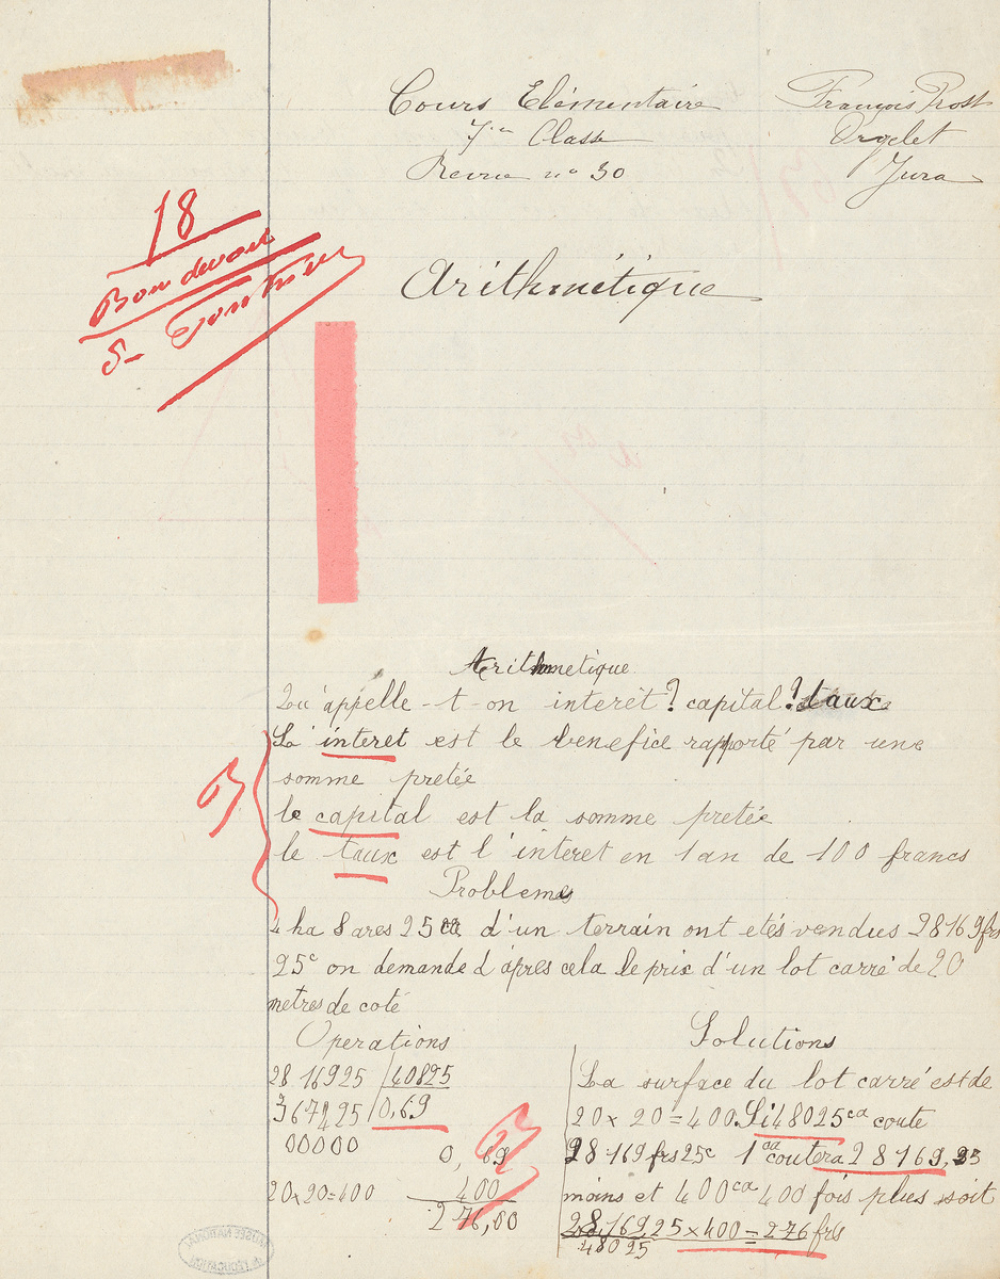 Cours Elémentaire
François Prost
7ie Classe
Orgelet
Revue no 30
Jura
18
Bon devoir
S-
Arithmétique
Arithmetique
Qu'appelle-t-on interêt? capital? taux
La interet est le benefice rapporté par une
somme pretée
le capital est la somme pretée
le taux est l'interet en 1 an de 100 francs
Problemes
4 ha 8 ares 25 ca d'un terrain ont etés vendus 28169 frs
25c on demande d'après cela le prix d'un lot carré de 20
metres de coté
Operations
Solutions
28 169 25 / 40825
367425 / 0,69
00000
0,69
20 x 20 = 400
400
276,00
La surface du lot carré est de
20 x 20 = 400. Si 48025 ca coute
28 169 frs 25c 1 ca coutera 28169,25
moins et 400 ca 400 fois plus soit
28,169,25 x 400 = 276 frs
48025
MUSÉE NATIONAL
DE L'ÉDUCATION